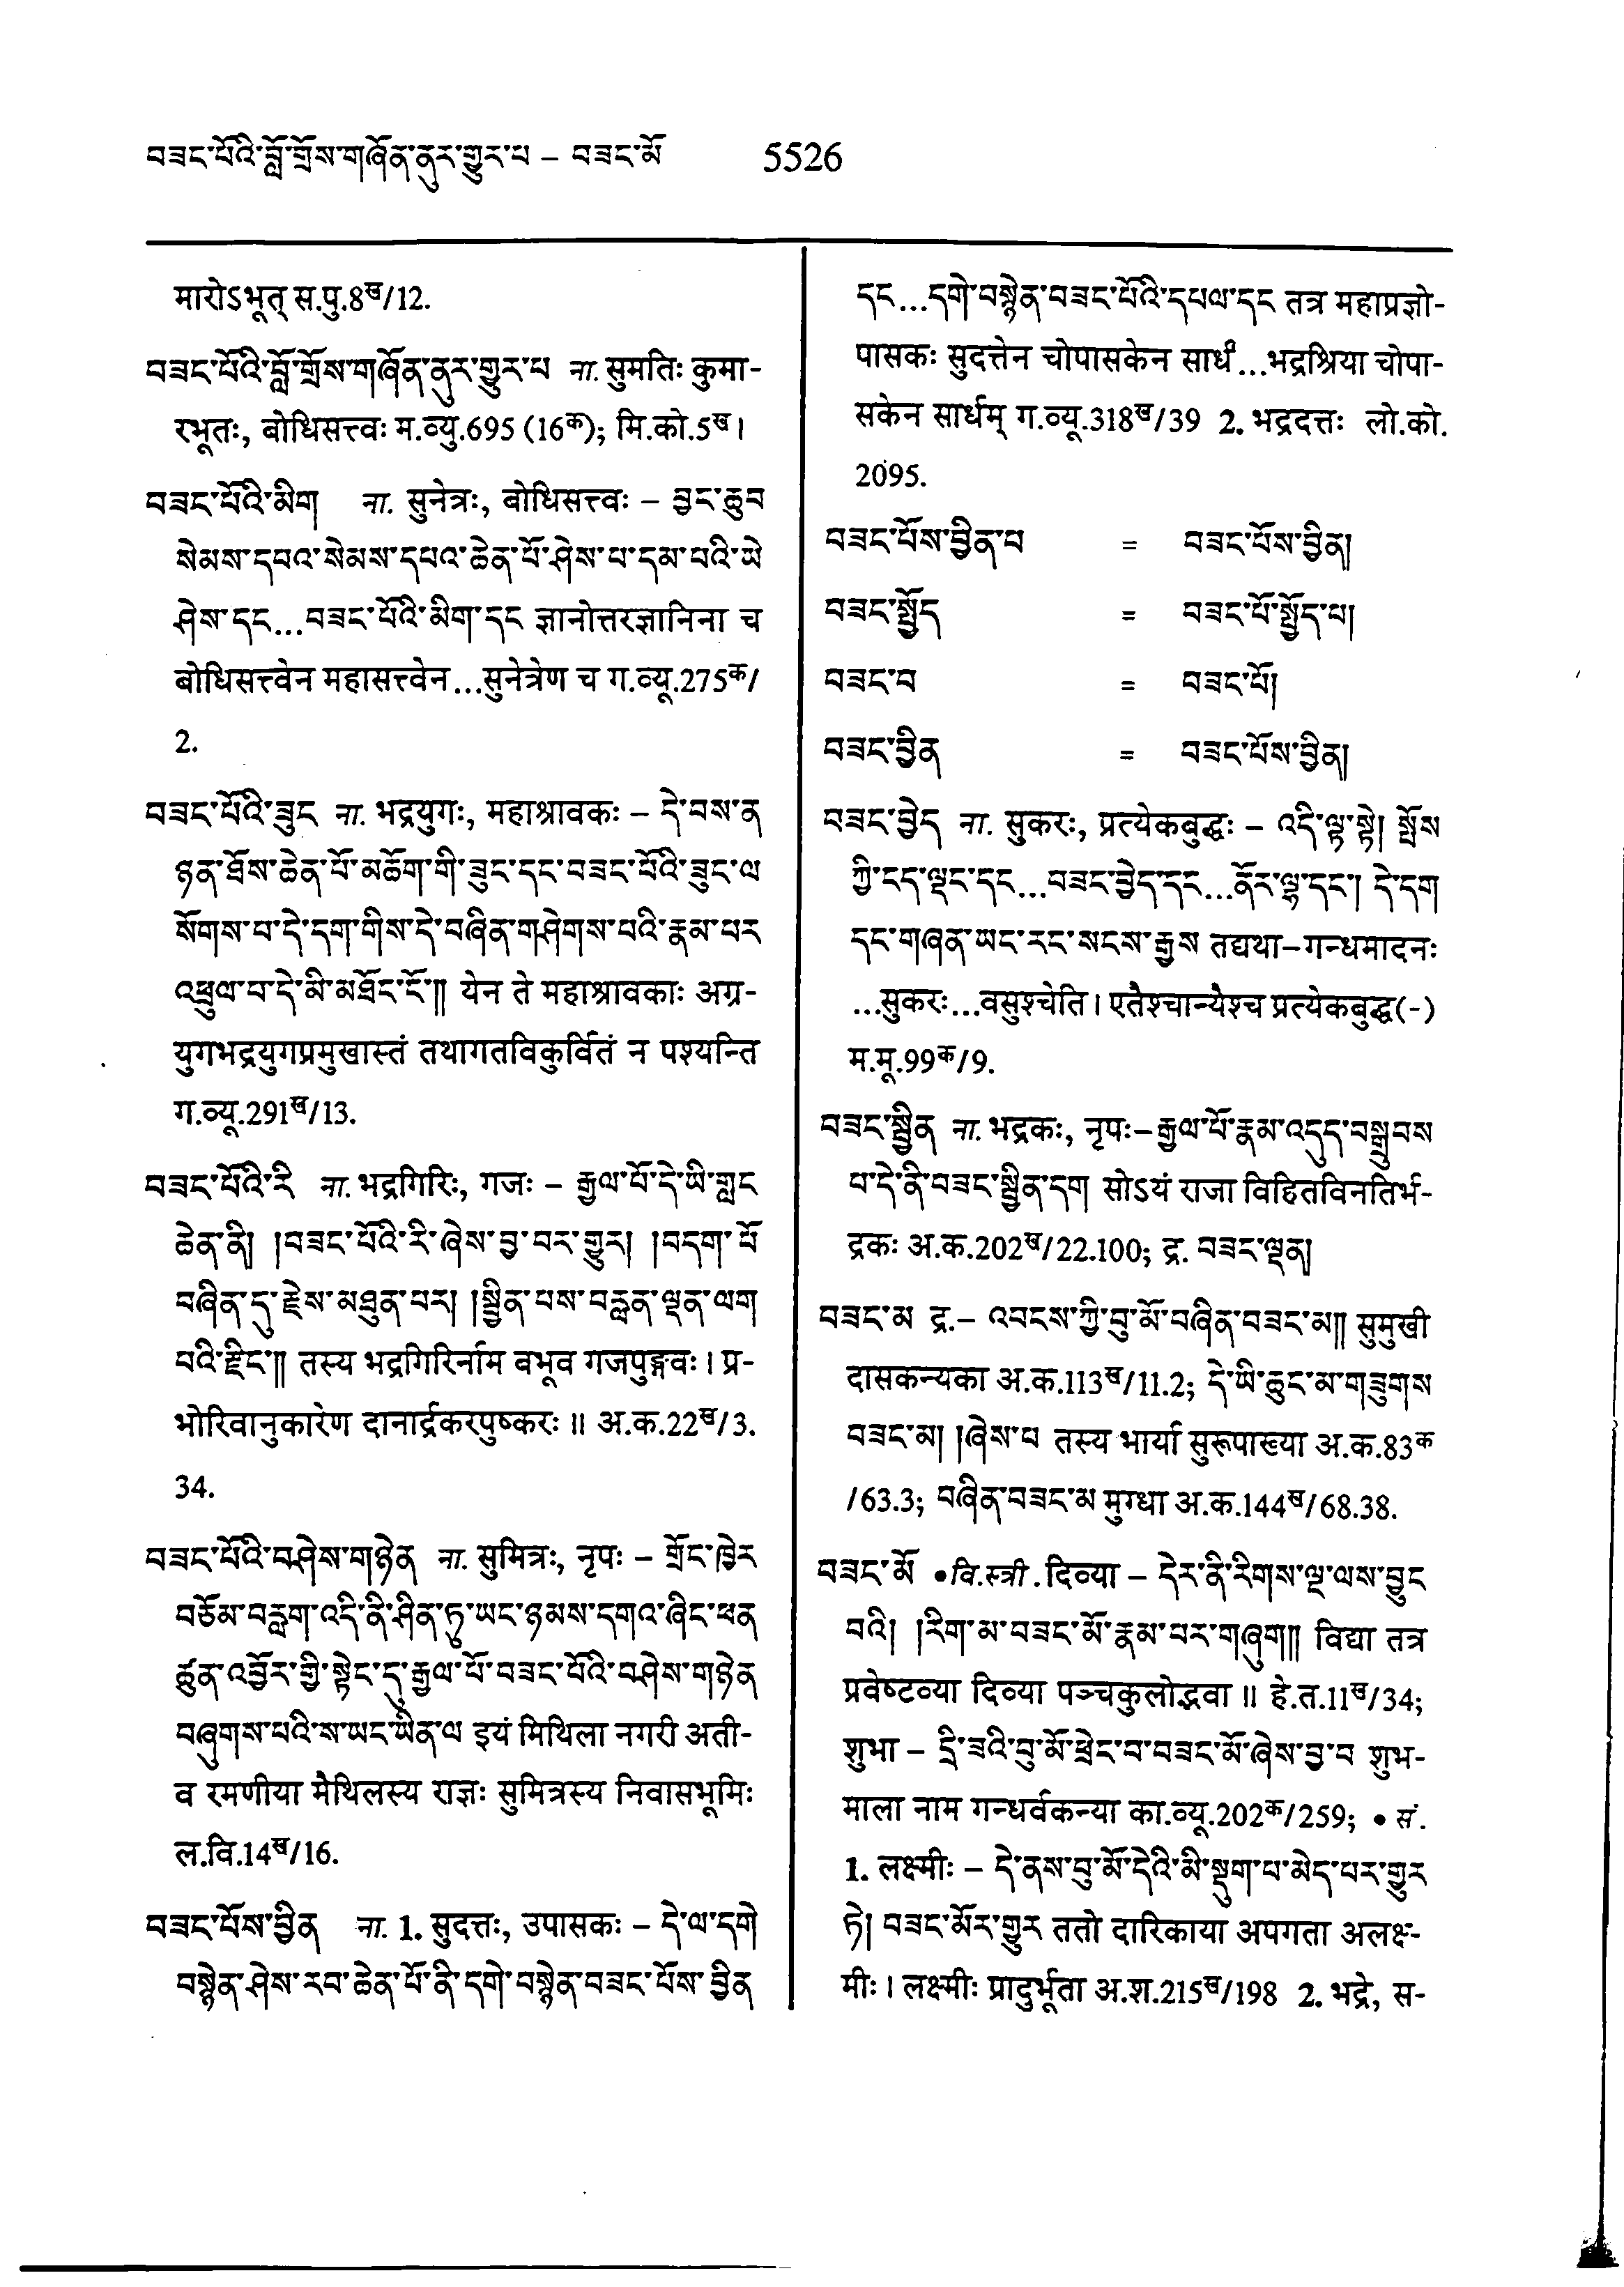 བཟང་པོའི་བློ་གྲོས་གཞོན་ནུར་གྱུར་པ – བཟང་མོ 5526
मारोऽभूत् स.पु.8ख/12.
བཟང་པོའི་བློ་གྲོས་གཞོན་ནུར་གྱུར་པ ना. सुमतिः कुमा-
रभूतः, बोधिसत्त्वः म.व्यु.695 (16क); मि.को.5ख।
བཟང་པོའི་མིག ना. सुनेत्रः, बोधिसत्त्वः – བྱང་ཆུབ
སེམས་དཔའ་སེམས་དཔའ་ཆེན་པོ་ཤེས་པ་དམ་པའི་ཡེ
ཤེས་དང...བཟང་པོའི་མིག་དང ज्ञानोत्तरज्ञानिना च
बोधिसत्त्वेन महासत्त्वेन...सुनेत्रेण च ग.व्यू.275क/
2.
བཟང་པོའི་ཟུང ना. भद्रयुगः, महाश्रावकः – དེ་བས་ན
ཉན་ཐོས་ཆེན་པོ་མཆོག་གི་ཟུང་དང་བཟང་པོའི་ཟུང་ལ
སོགས་པ་དེ་དག་གིས་དེ་བཞིན་གཤེགས་པའི་རྣམ་པར
འཕྲུལ་པ་དེ་མི་མཐོང་ངོ༌།། येन ते महाश्रावकाः अग्र-
युगभद्रयुगप्रमुखास्तं तथागतविकुर्वितं न पश्यन्ति
ग.व्यू.291ख/13.
བཟང་པོའི་རི ना. भद्रगिरिः, गजः – རྒྱལ་པོ་དེ་ཡི་གླང
ཆེན་ནི། །བཟང་པོའི་རི་ཞེས་བྱ་བར་གྱུར། །བདག་པོ
བཞིན་དུ་རྗེས་མཐུན་པར། །སྦྱིན་པས་བརླན་ལྡན་ལག
པའི་རྫིང་།། तस्य भद्रगिरिर्नाम बभूव गजपुङ्गवः। प्र-
भोरिवानुकारेण दानार्द्रकरपुष्करः॥ अ.क.22ख/3.
34.
བཟང་པོའི་བཤེས་གཉེན ना. सुमित्रः, नृपः – གྲོང་ཁྱེར
བཅོམ་བརླག་འདི་ནི་ཤིན་ཏུ་ཡང་ཉམས་དགའ་ཞིང་ཕན
ཚུན་འབྱོར་གྱི་སྟེང་དུ་རྒྱལ་པོ་བཟང་པོའི་བཤེས་གཉེན
བཞུགས་པའི་ས་ཡང་ཡིན་ལ इयं मिथिला नगरी अती-
व रमणीया मैथिलस्य राज्ञः सुमित्रस्य निवासभूमिः
ल.वि.14ख/16.
བཟང་པོས་བྱིན ना. 1. सुदत्तः, उपासकः – དེ་ལ་དགེ
བསྙེན་ཤེས་རབ་ཆེན་པོ་ནི་དགེ་བསྙེན་བཟང་པོས་བྱིན
དང...དགེ་བསྙེན་བཟང་པོའི་དཔལ་དང तत्र महाप्रज्ञो-
पासकः सुदत्तेन चोपासकेन सार्धं...भद्रश्रिया चोपा-
सकेन सार्धम् ग.व्यू.318ख/39 2. भद्रदत्तः लो.को.
2095.
བཟང་པོས་བྱིན་པ = བཟང་པོས་བྱིན།
བཟང་སྤྱོད = བཟང་པོ་སྤྱོད་པ།
བཟང་བ = བཟང་པོ།
བཟང་བྱིན = བཟང་པོས་བྱིན།
བཟང་བྱེད ना. सुकरः, प्रत्येकबुद्धः – འདི་ལྟ་སྟེ། སྤོས
ཀྱི་ངད་ལྡང་དང...བཟང་བྱེད་དང...ནོར་ལྷ་དང་། དེ་དག
དང་གཞན་ཡང་རང་སངས་རྒྱས तद्यथा–गन्धमादनः
...सुकरः...वसुश्चेति। एतैश्चान्यैश्च प्रत्येकबुद्ध(-)
म.मू.99क/9.
བཟང་སྦྱིན ना. भद्रकः, नृपः–རྒྱལ་པོ་རྣམ་འདུད་བསྒྲུབས
པ་དེ་ནི་བཟང་སྦྱིན་དག सोऽयं राजा विहितविनतिर्भ-
द्रकः अ.क.202ख/22.100; द्र. བཟང་ལྡན།
བཟང་མ द्र.– འབངས་ཀྱི་བུ་མོ་བཞིན་བཟང་མ།། सुमुखी
दासकन्यका अ.क.113ख/11.2; དེ་ཡི་ཆུང་མ་གཟུགས
བཟང་མ། །ཞེས་པ तस्य भार्या सुरूपाख्या अ.क.83क
/63.3; བཞིན་བཟང་མ मुग्धा अ.क.144ख/68.38.
བཟང་མོ •वि.स्त्री. दिव्या – དེར་ནི་རིགས་ལྔ་ལས་བྱུང
བའི། །རིག་མ་བཟང་མོ་རྣམ་པར་གཞུག།། विद्या तत्र
प्रवेष्टव्या दिव्या पञ्चकुलोद्भवा॥ हे.त.11ख/34;
शुभा – དྲི་ཟའི་བུ་མོ་ཕྲེང་བ་བཟང་མོ་ཞེས་བྱ་བ शुभ-
माला नाम गन्धर्वकन्या का.व्यू.202क/259; • सं.
1. लक्ष्मीः – དེ་ནས་བུ་མོ་དེའི་མི་སྡུག་པ་མེད་པར་གྱུར
ཏེ། བཟང་མོར་གྱུར ततो दारिकाया अपगता अलक्ष-
मीः। लक्ष्मीः प्रादुर्भूता अ.श.215ख/198 2. भद्रे, स-